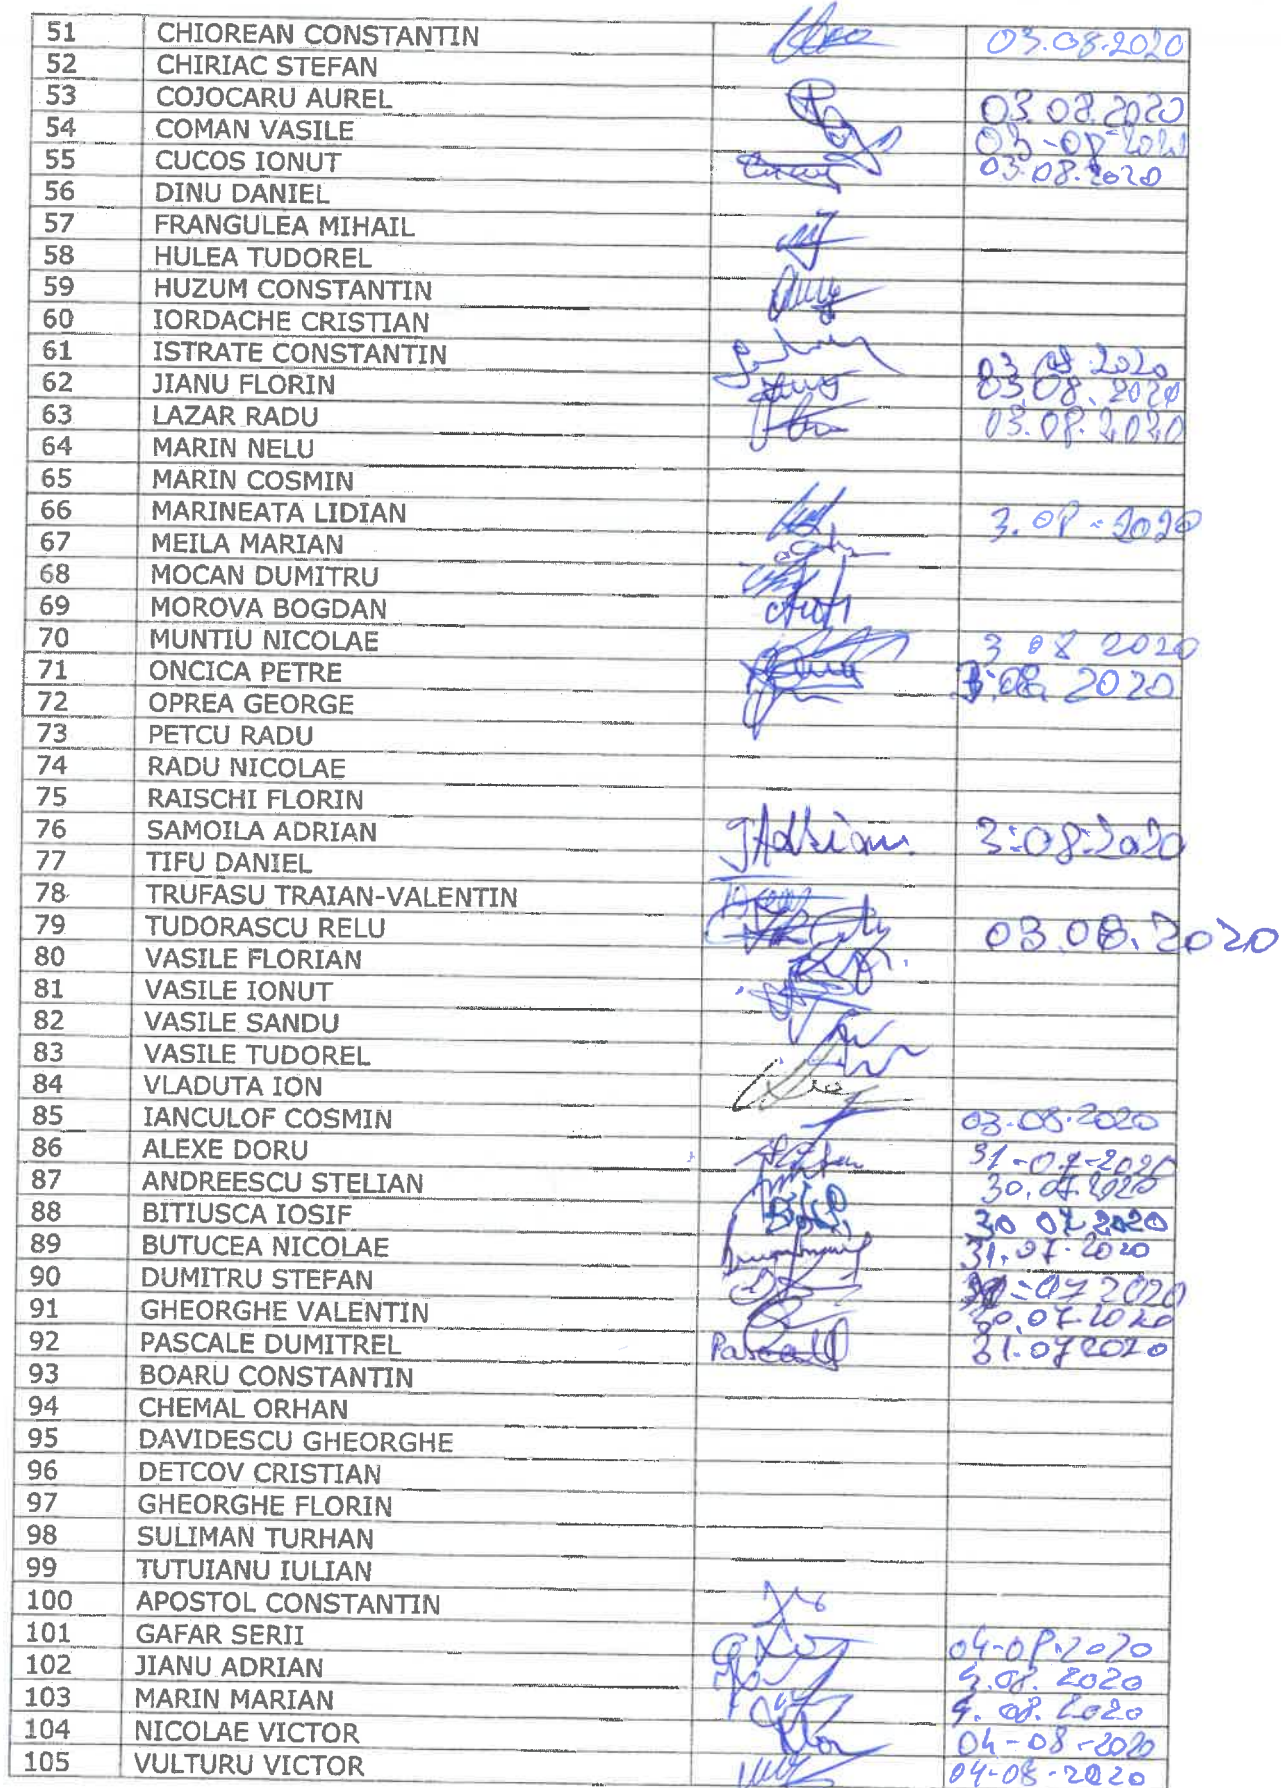 51 CHIOREAN CONSTANTIN 03.08.2020
52 CHIRIAC STEFAN
53 COJOCARU AUREL 03.08.2020
54 COMAN VASILE
55 CUCOS IONUT 03.08.2020
56 DINU DANIEL
57 FRANGULEA MIHAIL
58 HULEA TUDOREL
59 HUZUM CONSTANTIN
60 IORDACHE CRISTIAN
61 ISTRATE CONSTANTIN 03.08.2020
62 JIANU FLORIN 03.08.2020
63 LAZAR RADU 03.08.2020
64 MARIN NELU
65 MARIN COSMIN
66 MARINEATA LIDIAN 3.08-2020
67 MEILA MARIAN
68 MOCAN DUMITRU
69 MOROVA BOGDAN
70 MUNTIU NICOLAE 3 08 2020
71 ONCICA PETRE 3.08. 2020
72 OPREA GEORGE
73 PETCU RADU
74 RADU NICOLAE
75 RAISCHI FLORIN
76 SAMOILA ADRIAN 3.08.2020
77 TIFU DANIEL
78 TRUFASU TRAIAN-VALENTIN
79 TUDORASCU RELU 03.08.2020
80 VASILE FLORIAN
81 VASILE IONUT
82 VASILE SANDU
83 VASILE TUDOREL
84 VLADUTA ION
85 IANCULOF COSMIN 03.08.2020
86 ALEXE DORU 31-07-2020
87 ANDREESCU STELIAN 30.07.2020
88 BITIUSCA IOSIF 30 07 2020
89 BUTUCEA NICOLAE 31.07.2020
90 DUMITRU STEFAN
91 GHEORGHE VALENTIN 30.07.2020
92 PASCALE DUMITREL Pascale 31.07 2020
93 BOARU CONSTANTIN
94 CHEMAL ORHAN
95 DAVIDESCU GHEORGHE
96 DETCOV CRISTIAN
97 GHEORGHE FLORIN
98 SULIMAN TURHAN
99 TUTUIANU IULIAN
100 APOSTOL CONSTANTIN
101 GAFAR SERII 04-08.2020
102 JIANU ADRIAN 4.08. 2020
103 MARIN MARIAN 4. 08. 2020
104 NICOLAE VICTOR 04-08-2020
105 VULTURU VICTOR 04-08-2020